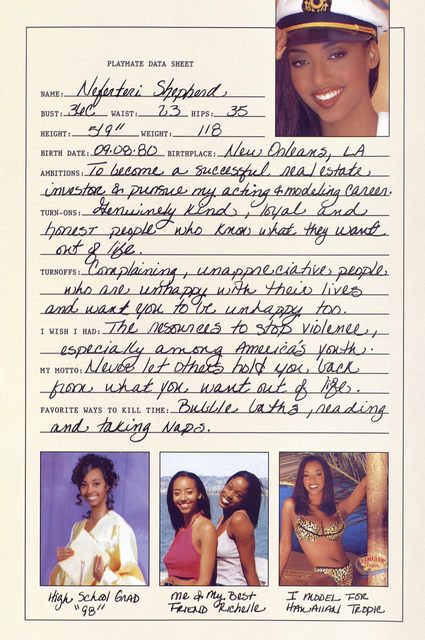 PLAYMATE DATA SHEET
NAME: Neferteri Shepherd
BUST: 34C WAIST: 23 HIPS: 35
HEIGHT: 5'9" WEIGHT: 118
BIRTH DATE: 09·08·80 BIRTHPLACE: New Orleans, LA
AMBITIONS: To become a successful real estate
investor & pursue my acting & modeling career.
TURN-ONS: Genuinely kind, loyal and
honest people who know what they want
out of life.
TURNOFFS: Complaining, unappreciative people
who are unhappy with their lives
and want you to be unhappy too.
I WISH I HAD: The resources to stop violence,
especially among America's youth.
MY MOTTO: Never let others hold you back
from what you want out of life.
FAVORITE WAYS TO KILL TIME: Bubble baths, reading
and taking naps.
High School Grad
"98"
me & My Best
FRIEND Richelle
I MODEL FOR
HAWAIIAN TROPIC